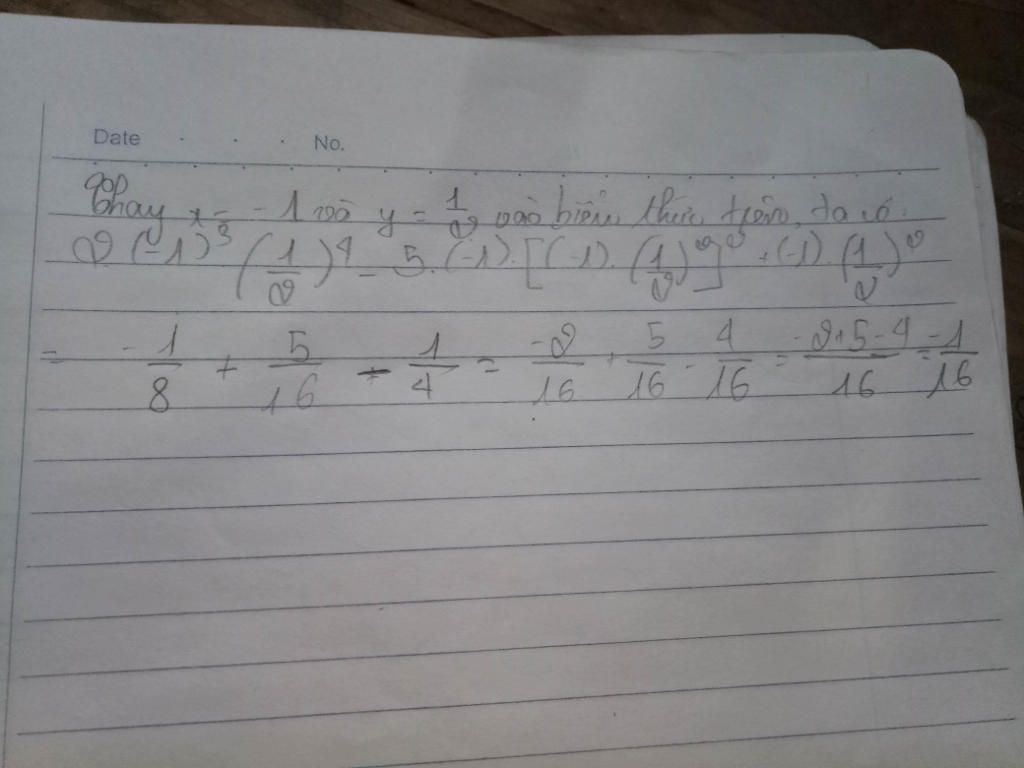 Date . . . No.
Thay x = -1 và y = 1/2 vào biểu thức trên, ta có.
2 (-1)^3 (1/2)^4 - 5.(-1).[(-1).(1/2)^2]^2 + (-1).(1/2)^2
= -1/8 + 5/16 - 1/4 = -2/16 + 5/16 - 4/16 = -2+5-4/16 = -1/16